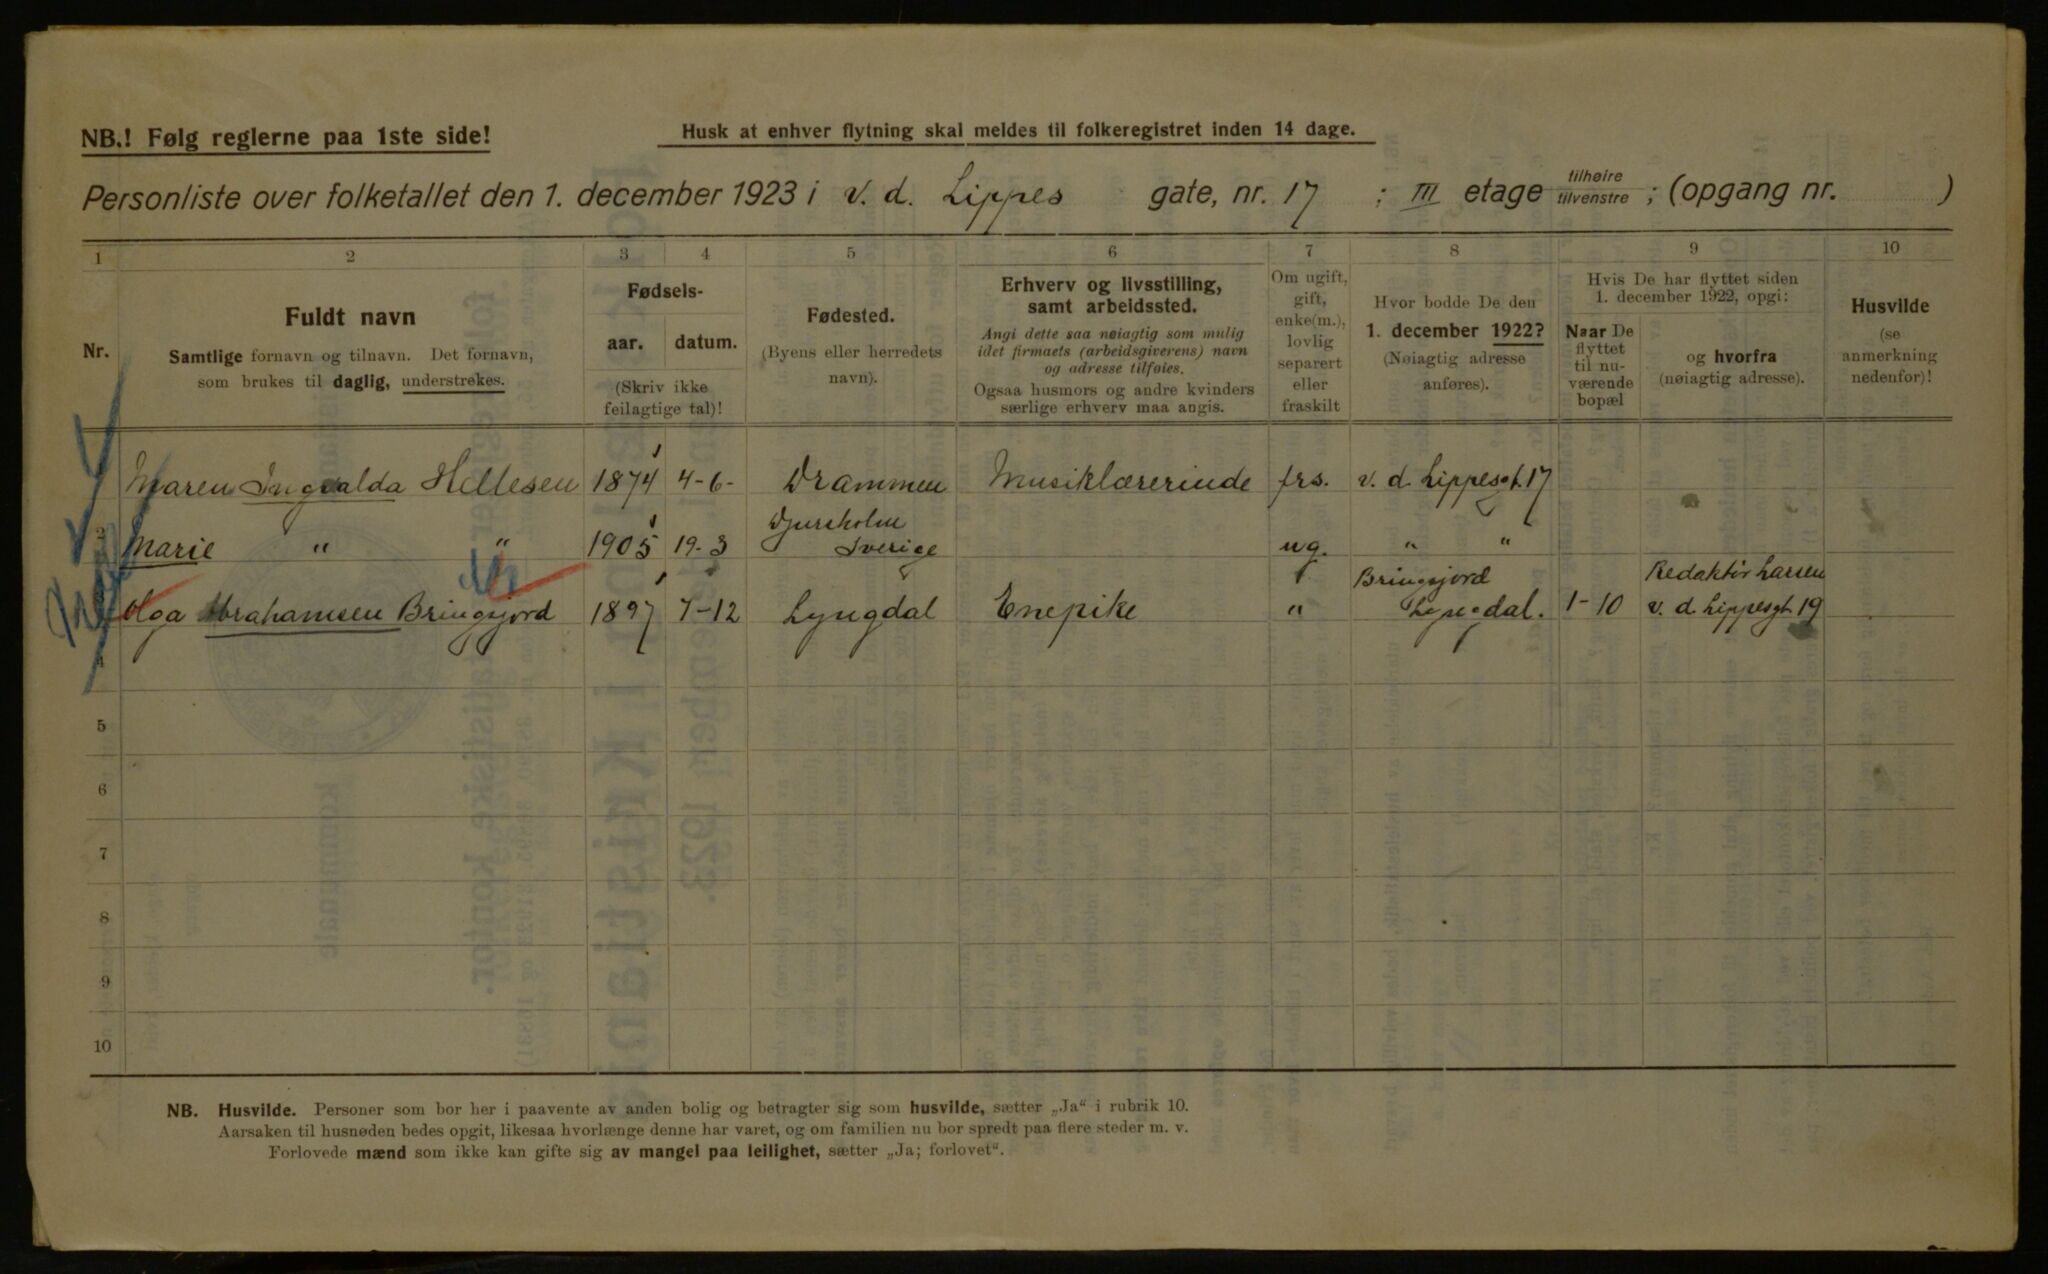 NB.! Følg reglerne paa 1ste side!
Husk at enhver flytning skal meldes til folkeregistret inden 14 dage.
Personliste over folketallet den 1. december 1923 i v. d. Lippes gate, nr. 17 ; III etage tilhøire tilvenstre ; (opgang nr. )
1 2 3 4 5 6 7 8 9 10
Nr.
Fuldt navn
Samtlige fornavn og tilnavn. Det fornavn,
som brukes til daglig, understrekes.
Fødsels-
aar. datum.
(Skriv ikke
feilagtige tal)!
Fødested.
(Byens eller herredets
navn).
Erhverv og livsstilling,
samt arbeidssted.
Angi dette saa nøiagtig som mulig
idet firmaets (arbeidsgiverens) navn
og adresse tilføies.
Ogsaa husmors og andre kvinders
særlige erhverv maa angis.
Om ugift,
gift,
enke(m.),
lovlig
separert
eller
fraskilt
Hvor bodde De den
1. december 1922?
(Nøiagtig adresse
anføres).
Hvis De har flyttet siden
1. december 1922, opgi:
Naar De
flyttet
til nu-
værende
bopæl
og hvorfra
(nøiagtig adresse).
Husvilde
(se
anmerkning
nedenfor)!
Maren Ingvalda Hellesen 1874 4-6- Drammen Musiklærerinde frs. v. d. Lippesgt. 17
2 Marie " " 1905 19-3 Djursholm Sverige ug. " "
Olga Abrahamsen Bringsjord 1897 7-12 Lyngdal Enepike " Bringsjord Lyngdal. 1-10 Redaktör Larsen v. d. Lippesgt. 19
4
5
6
7
8
9
10
NB. Husvilde. Personer som bor her i paavente av anden bolig og betragter sig som husvilde, sætter „Ja“ i rubrik 10.
Aarsaken til husnøden bedes opgit, likesaa hvorlænge denne har varet, og om familien nu bor spredt paa flere steder m. v.
Forlovede mænd som ikke kan gifte sig av mangel paa leilighet, sætter „Ja; forlovet“.